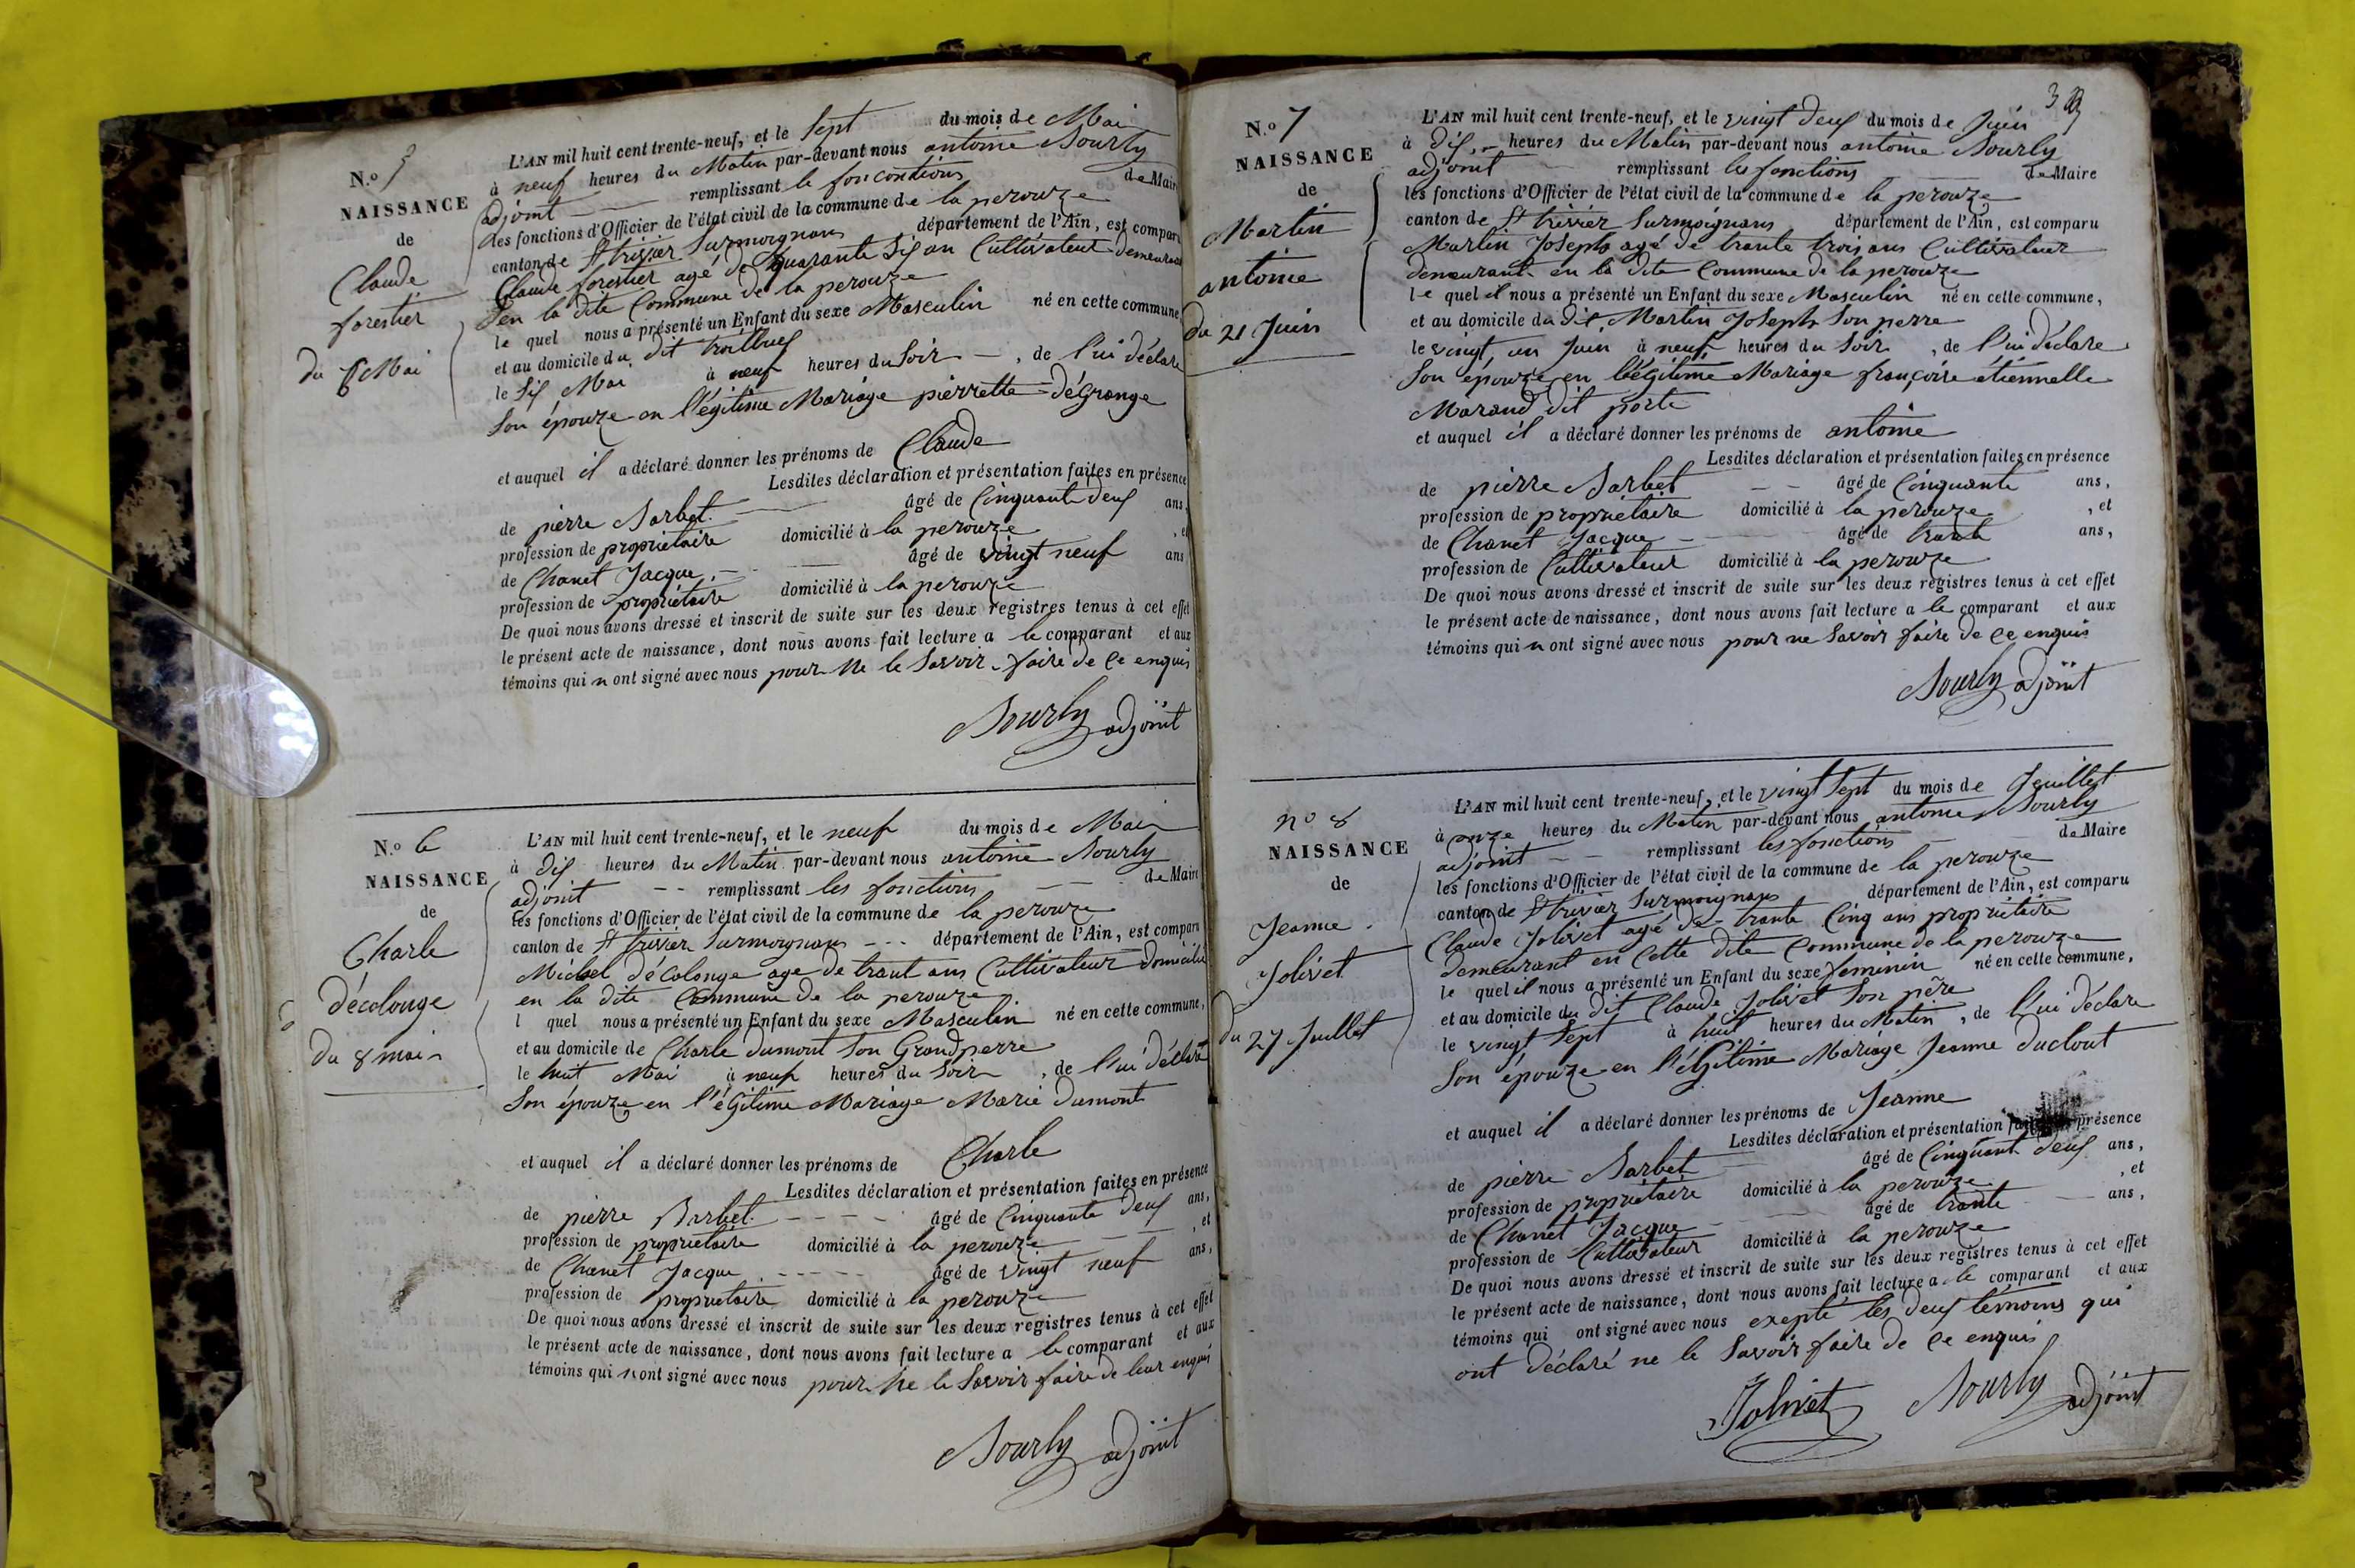 N.o 5
NAISSANCE
de
Claude
forestier
du 6 Mai
L'AN mil huit cent trente-neuf, et le Sept du mois de Mai
à neuf heures du Matin par-devant nous antoine Bourly
adjoint remplissant le foncontions de Maire
les fonctions d'Officier de l'état civil de la commune de la perouze
canton de St trivier Surmoignans département de l'Ain, est comparu
Claude forestier agé de quarante Six an Cultivateur demeurant
en la dite Commune de la perouze
le quel nous a présenté un Enfant du sexe Masculin né en cette commune
et au domicile du dit
le Six Mai à neuf heures du Soir, de l'ui déclare
Son épouze en l'égitime Mariage pierrette dégrange
et auquel il a déclaré donner les prénoms de Claude
Lesdites déclaration et présentation faites en présence
de pierre Barbet âgé de Cinquante deux ans,
profession de propriétaire domicilié à la perouze, et
de Chanet Jacque âgé de vingt neuf ans
profession de propriétaire domicilié à la perouze
De quoi nous avons dressé et inscrit de suite sur les deux registres tenus à cet effet
le présent acte de naissance, dont nous avons fait lecture a le comparant et aux
témoins qui n ont signé avec nous pour ne le Savoir faire de ce enquis
Bourly adjoint
N.o 6
NAISSANCE
de
Charle
décolonge
du 8 mai
L'AN mil huit cent trente-neuf, et le neuf du mois de Mai
à dix heures du Matin par-devant nous antoine Bourly
adjoint remplissant les fonctions de Maire
les fonctions d'Officier de l'état civil de la commune de la perouze
canton de St trivier Surmoignans département de l'Ain, est comparu
Michel décolonge age de trant ans Cultivateur domicilié
en la dite Commune de la perouze
l quel nous a présenté un Enfant du sexe Masculin né en cette commune,
et au domicile de Charle dumont Son Grandperre
le huit Mai à neuf heures du Soir, de l'ui déclare
Son épouze en l'égitime Mariage Marie dumont
et auquel il a déclaré donner les prénoms de Charle
Lesdites déclaration et présentation faites en présence
de pierre Barbet âgé de Cinquante deux ans,
profession de propriétaire domicilié à la perouze, et
de Chanet Jacque âgé de vingt neuf ans,
profession de propriétaire domicilié à la perouze
De quoi nous avons dressé et inscrit de suite sur les deux registres tenus à cet effet
le présent acte de naissance, dont nous avons fait lecture a le comparant et aux
témoins qui n ont signé avec nous pour ne le Savoir faire de leur enquis
Bourly adjoint
3
N.o 7
NAISSANCE
de
Martin
antoine
du 21 Juin
L'AN mil huit cent trente-neuf, et le vingt deux du mois de Juin
à dix heures du Matin par-devant nous antoine Bourly
adjoint remplissant les fonctions de Maire
les fonctions d'Officier de l'état civil de la commune de la perouze
canton de St trivier Surmoignans département de l'Ain, est comparu
Martin Joseph agé de trante trois ans Cultivateur
demeurant en la dite Commune de la perouze
le quel il nous a présenté un Enfant du sexe Masculin né en cette commune,
et au domicile du dit Martin Joseph Son perre
le vingt un Juin à neuf heures du Soir, de l'ui déclare
Son épouze en l'égitime Mariage françoise étiennelle
Marand dit porte
et auquel il a déclaré donner les prénoms de antoine
Lesdites déclaration et présentation faites en présence
de pierre Barbet âgé de Cinquante ans,
profession de propriétaire domicilié à la perouze, et
de Chanet Jacque âgé de trante ans,
profession de Cultivateur domicilié à la perouze
De quoi nous avons dressé et inscrit de suite sur les deux registres tenus à cet effet
le présent acte de naissance, dont nous avons fait lecture a le comparant et aux
témoins qui n ont signé avec nous pour ne Savoir faire de ce enquis
Bourly adjoint
no 8
NAISSANCE
de
Jeanne
Jolivet
du 27 Juillet
L'AN mil huit cent trente-neuf, et le vingt Sept du mois de Jeuillet
à onze heures du Matin par-devant nous antoine Bourly
adjoint remplissant les fonctions de Maire
les fonctions d'Officier de l'état civil de la commune de la perouze
canton de St trivier Surmoignans département de l'Ain, est comparu
Claude Jolivet agé de trante Cinq ans propriétaire
demeurant en Cette dite Commune de la perouze
le quel il nous a présenté un Enfant du sexe feminin né en cette commune,
et au domicile du dit Claude Jolivet Son père
le vingt Sept à huit heures du Matin, de l'ui déclare
Son épouze en l'égitime Mariage Jeanne duclout
et auquel il a déclaré donner les prénoms de Jeanne
Lesdites déclaration et présentation présence
de pierre Barbet âgé de Cinquant deux ans,
profession de propriétaire domicilié à la perouze, et
de Chanet Jacque âgé de trante ans,
profession de Cultivateur domicilié à la perouze
De quoi nous avons dressé et inscrit de suite sur les deux registres tenus à cet effet
le présent acte de naissance, dont nous avons fait lecture a le comparant et aux
témoins qui ont signé avec nous exepté les deux témoins qui
ont déclaré ne le Savoir faire de ce enquis
Jolivet Bourly adjoint